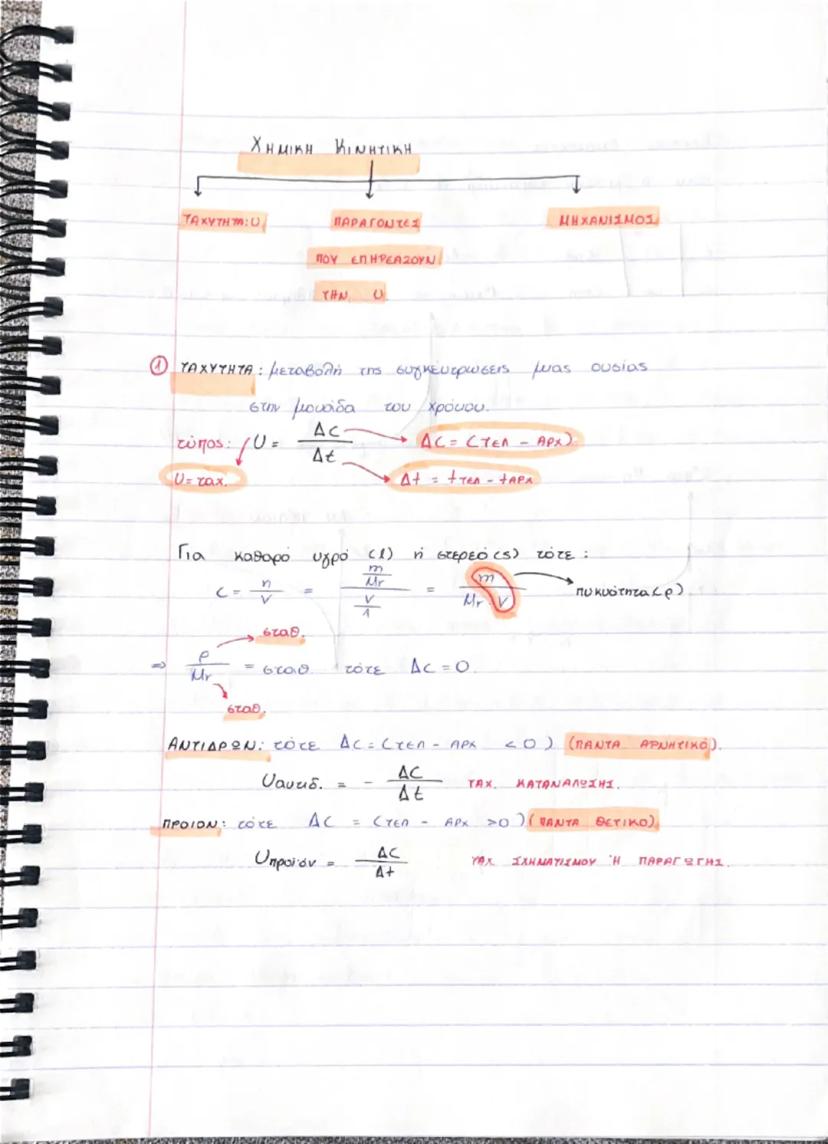 ΧΗΜΙΚΗ ΚΙΝΗΤΙΚΗ
ΤΑΧΥΤΗΤΑ: U ΠΑΡΑΓΟΝΤΕΣ ΜΗΧΑΝΙΣΜΟΣ
ΠΟΥ ΕΠΗΡΕΑΖΟΥΝ
ΤΗΝ U
① ΤΑΧΥΤΗΤΑ: μεταβολή της συγκέντρωσεις μιας ουσίας
στην μονάδα του χρόνου.
τύπος: U = ΔC / Δt → ΔC = CΤΕΛ - ΑΡΧ)
U = ταχ. Δt = tΤΕΛ - tΑΡΧ
Για καθαρό υγρό (l) ή στερεό (s) τότε:
C = n/V = (m/Mr)/(V/1) = m/(Mr · V) → πυκνότητα (ρ)
σταθ.
⇒ ρ/Mr = σταθ τότε ΔC = 0.
σταθ.
ΑΝΤΙΔΡΩΝ: τότε ΔC = (ΤΕΛ - ΑΡΧ < 0) (ΠΑΝΤΑ ΑΡΝΗΤΙΚΟ).
Uαντιδ. = - ΔC/Δt ΤΑΧ. ΚΑΤΑΝΑΛΩΣΗΣ.
ΠΡΟΙΟΝ: τότε ΔC = (ΤΕΛ - ΑΡΧ > 0) (ΠΑΝΤΑ ΘΕΤΙΚΟ)
Uπροιόν = ΔC/Δt ΤΑΧ ΣΧΗΜΑΤΙΣΜΟΥ Ή ΠΑΡΑΓΩΓΗΣ.